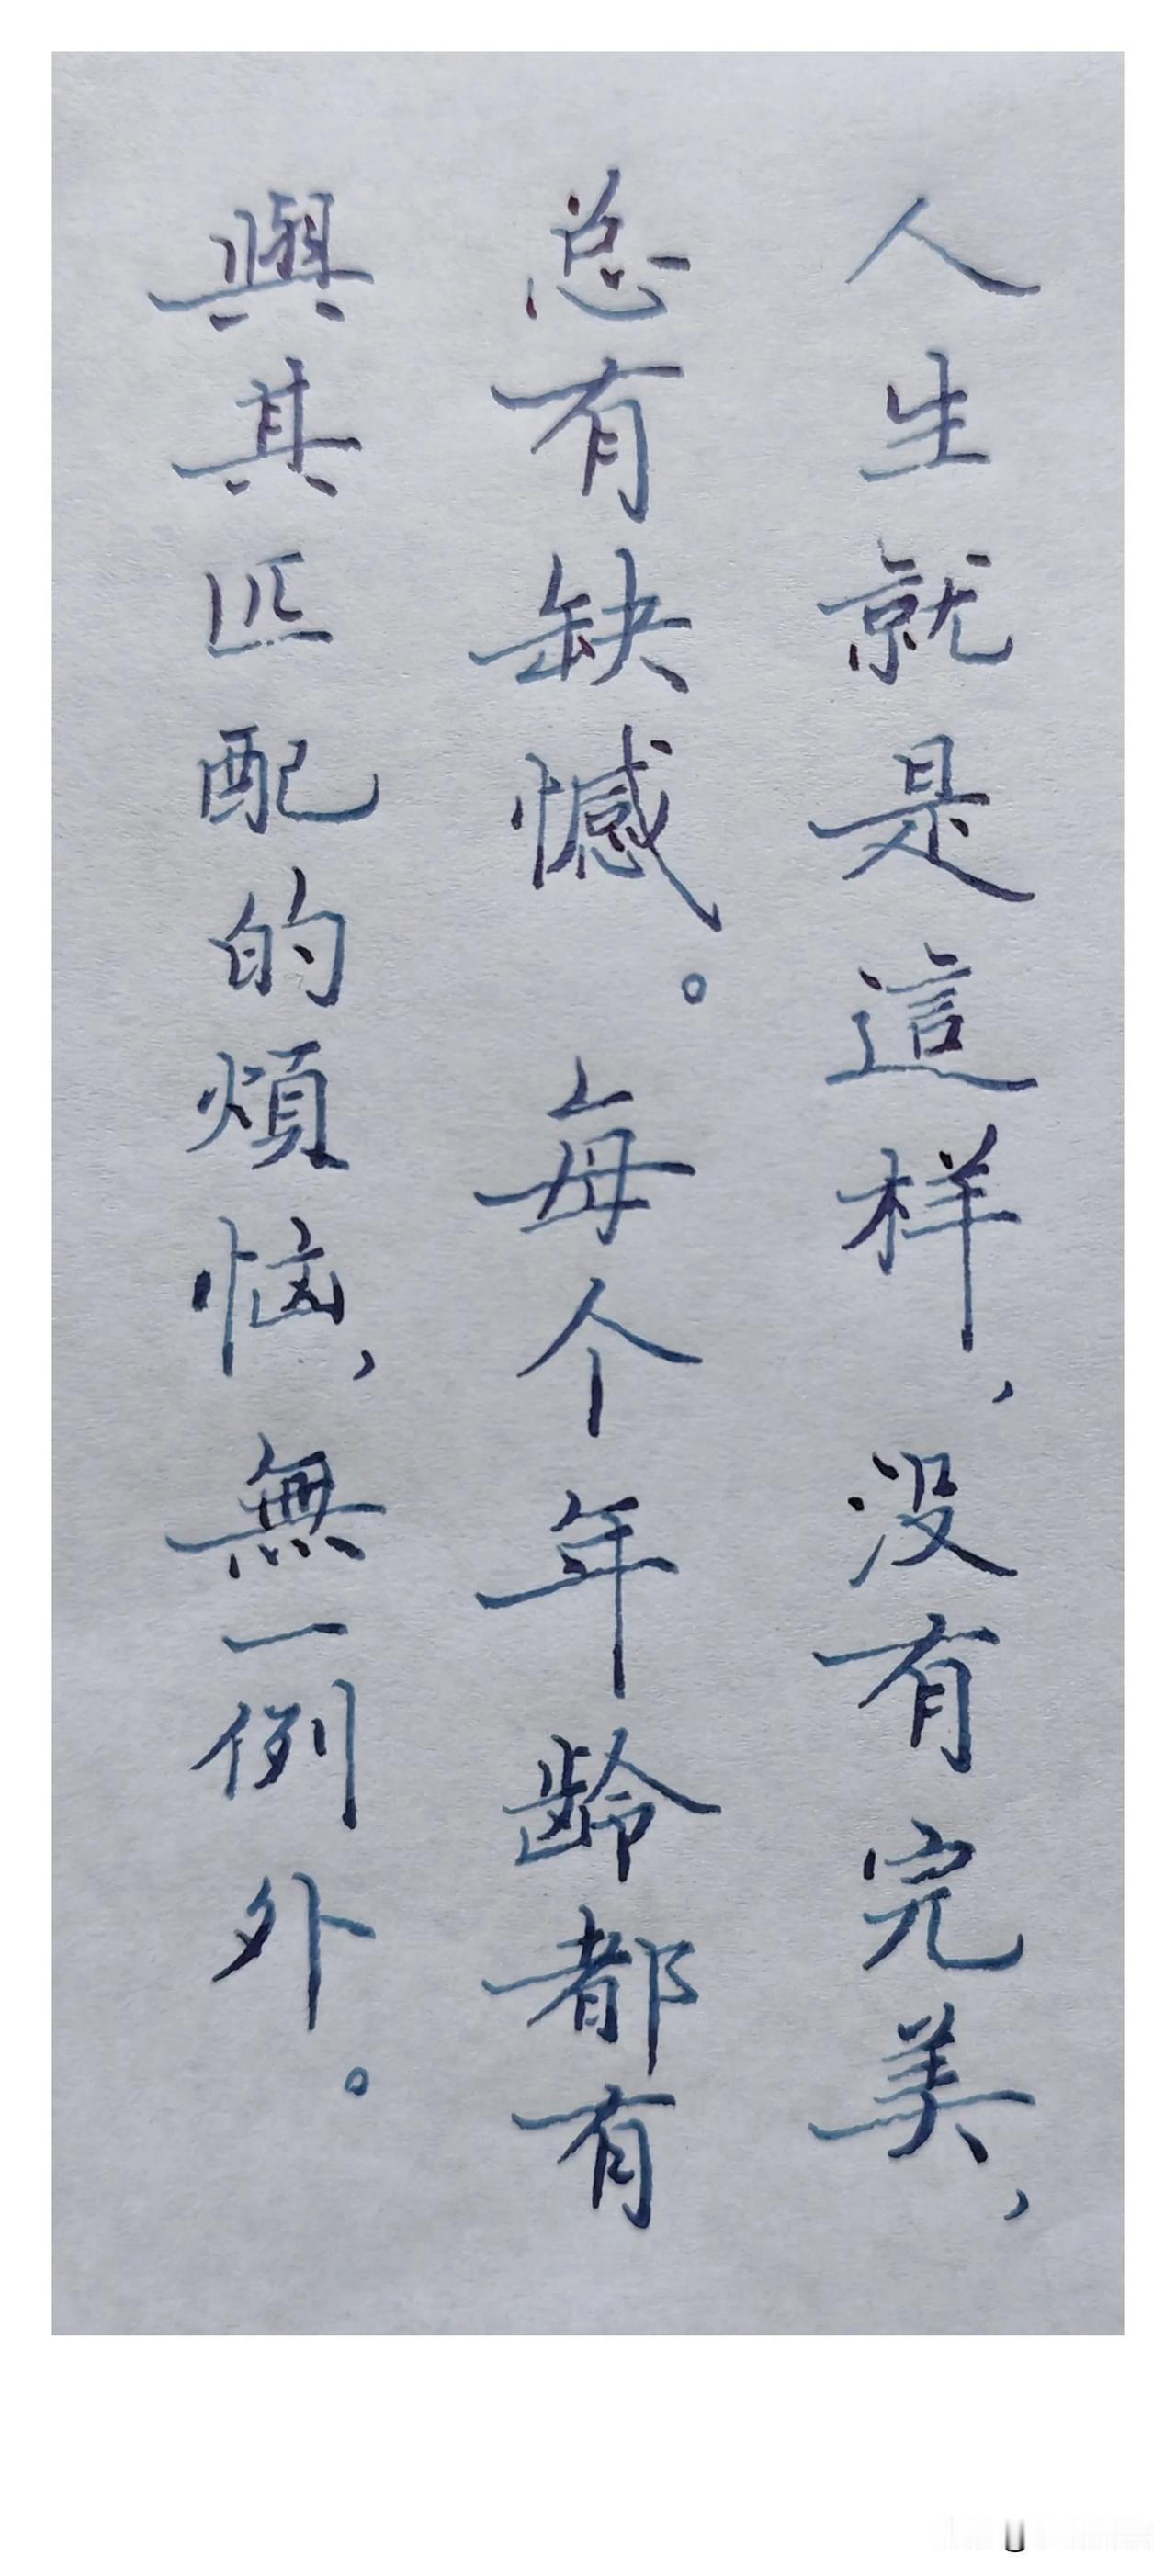 人生就是這样，没有完美，
总有缺憾。每个年龄都有
與其匹配的煩恼，無一例外。